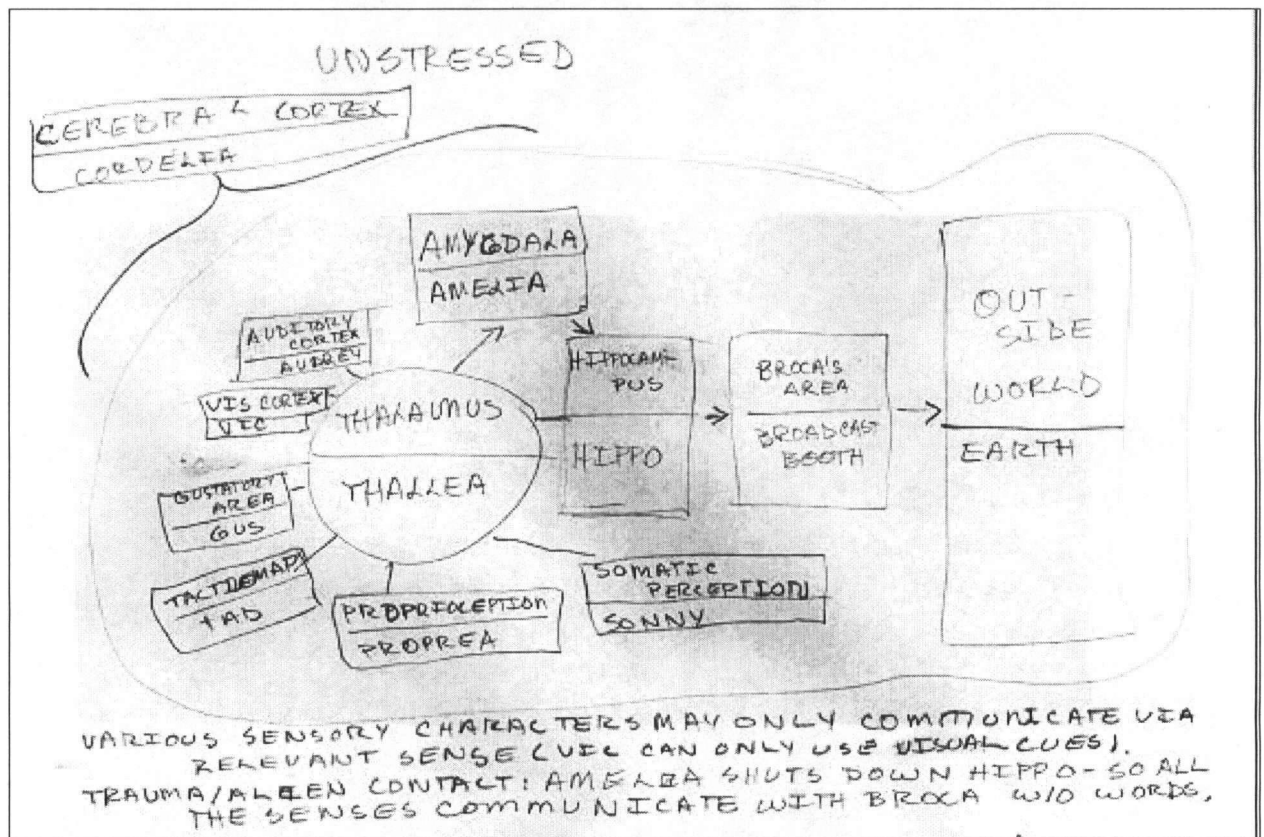 UNSTRESSED
CEREBRAL CORTEX
CORDELIA
AMYGDALA
AMELIA
AUDITORY
CORTEX
AUDREY
VIS CORTEX
VIC
THALAMUS
THALLEA
GUSTATORY
AREA
GUS
TACTILE MAP
TAD
PROPRIOCEPTION
PROPREA
SOMATIC
PERCEPTION
SONNY
HIPPOCAM-
PUS
HIPPO
BROCA'S
AREA
BROADCAST
BOOTH
OUT-
SIDE
WORLD
EARTH
VARIOUS SENSORY CHARACTERS MAY ONLY COMMUNICATE VIA
RELEVANT SENSE (VIC CAN ONLY USE VISUAL CUES).
TRAUMA/ALIEN CONTACT: AMELIA SHUTS DOWN HIPPO - SO ALL
THE SENSES COMMUNICATE WITH BROCA W/O WORDS.